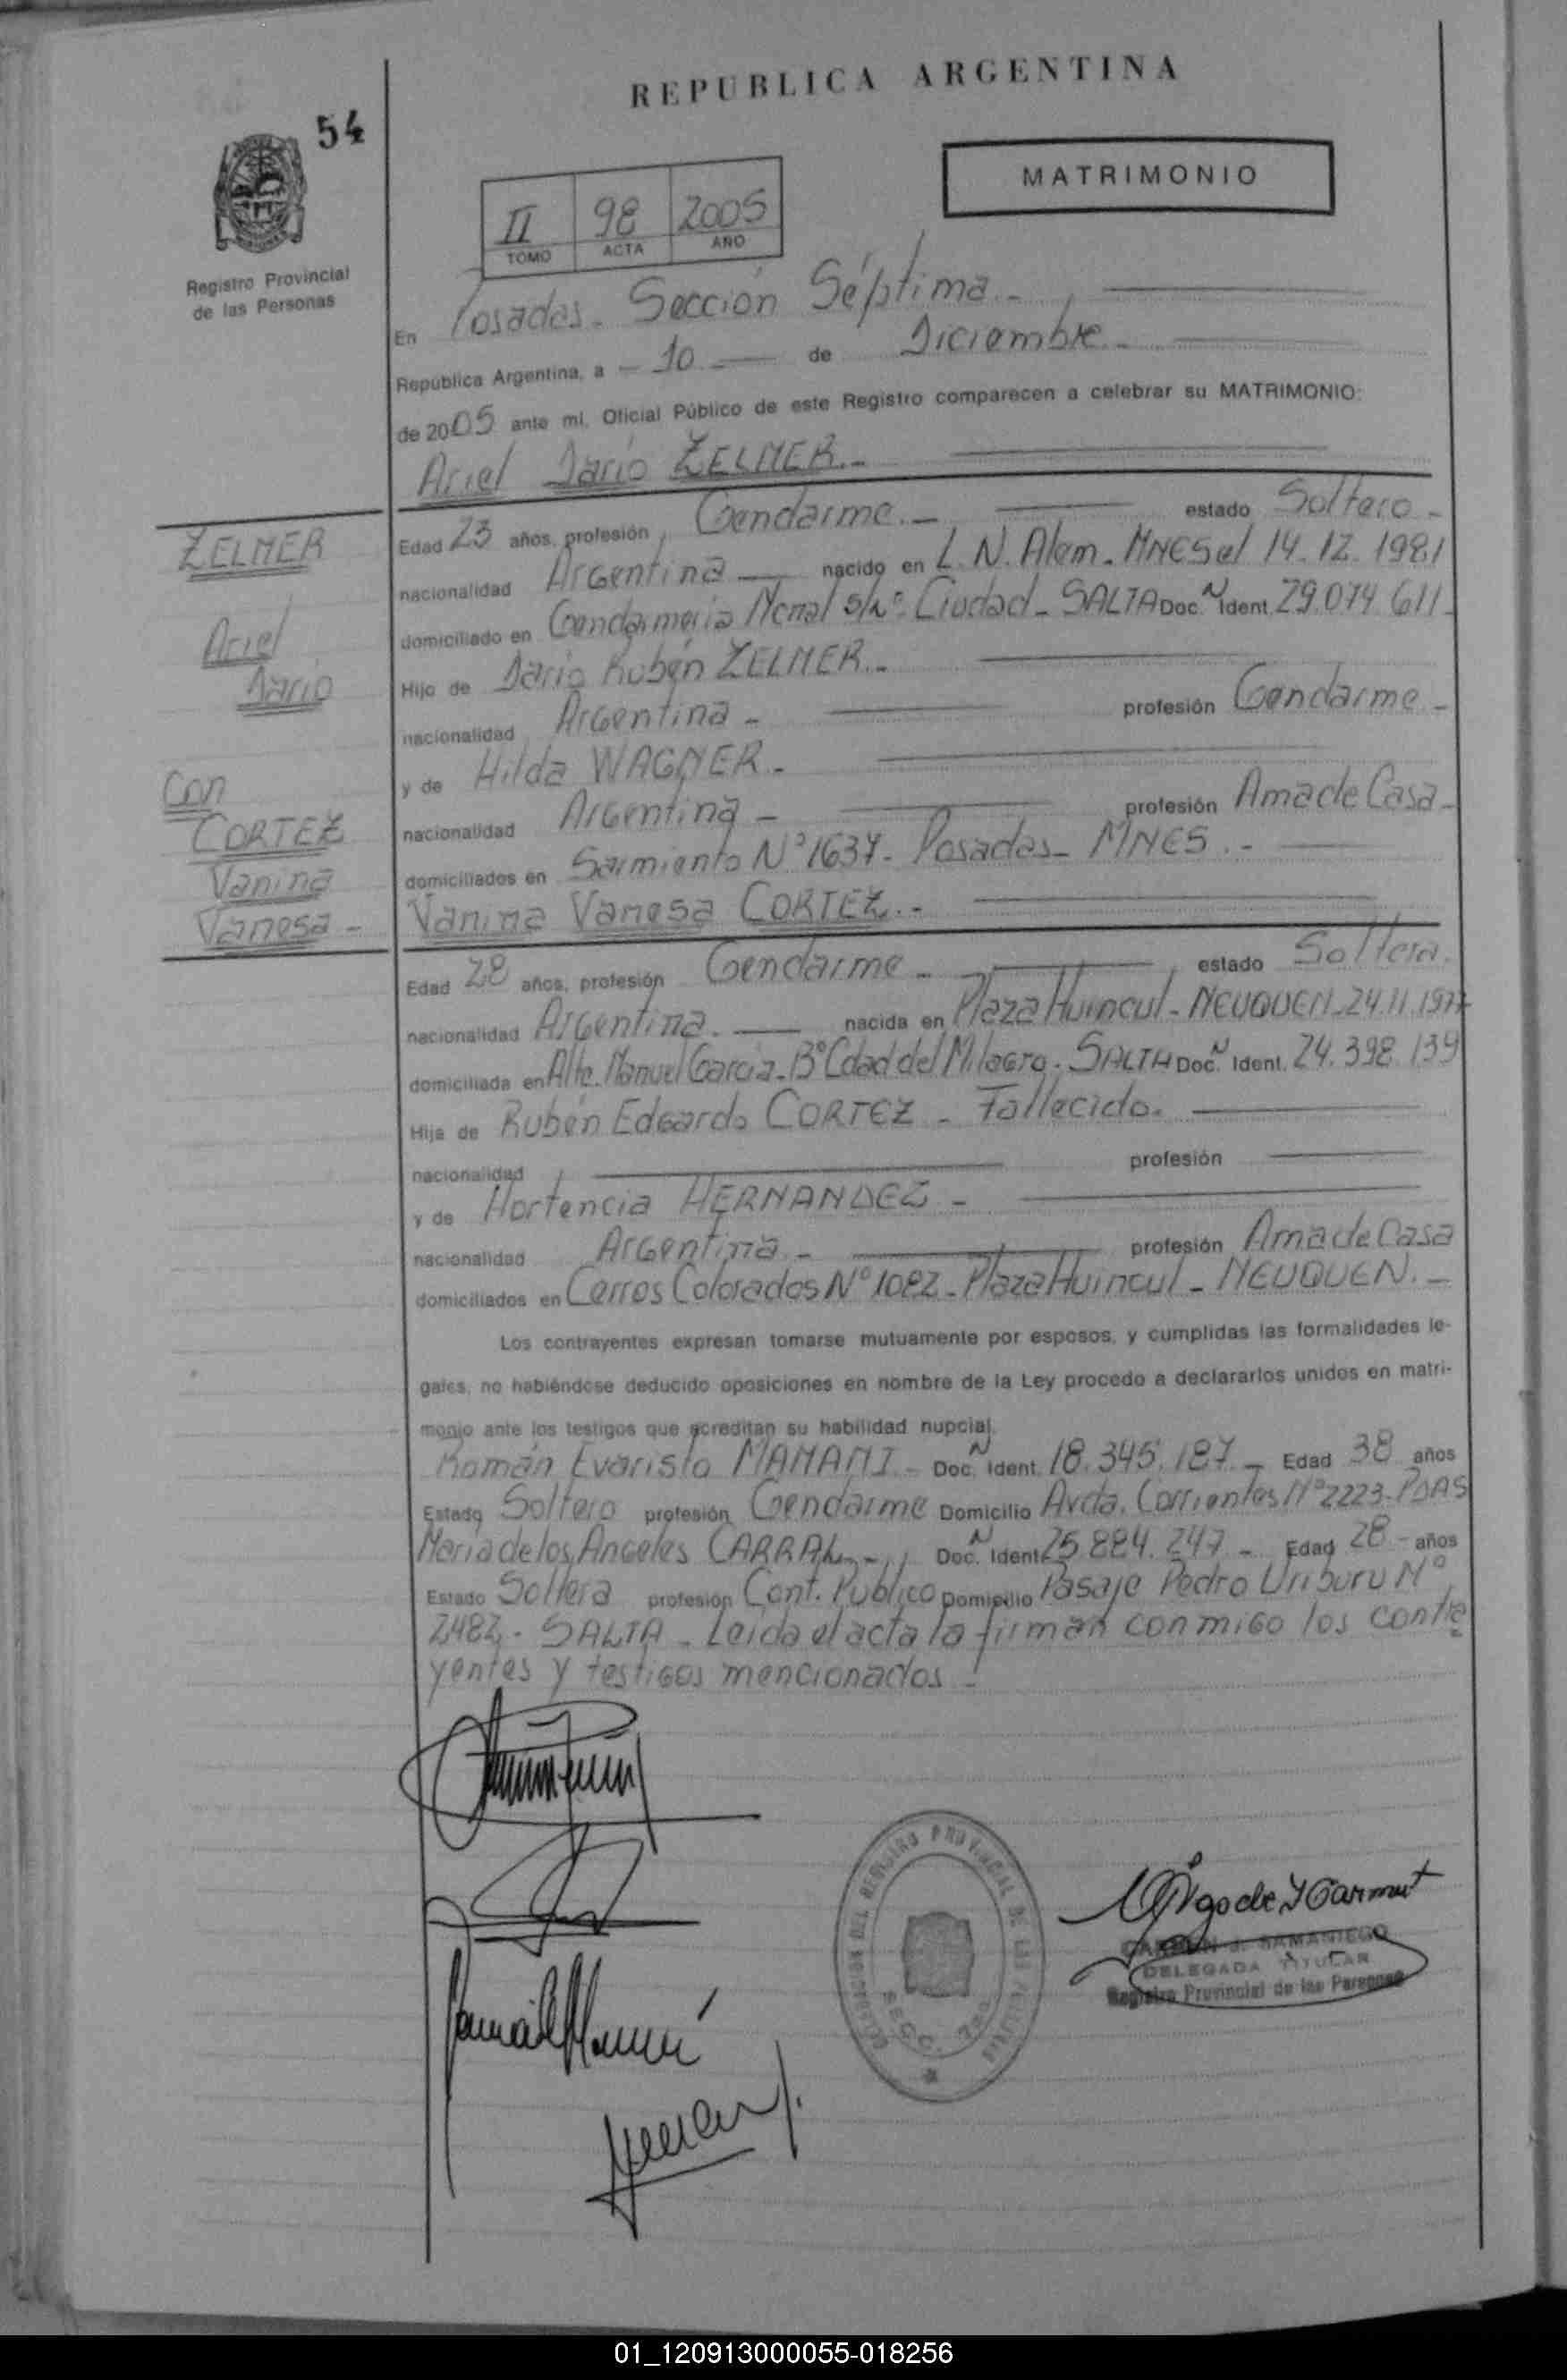 REPUBLICA ARGENTINA
54
MATRIMONIO
II 98 2005
TOMO ACTA AÑO
Registro Provincial
de las Personas
En Posadas - Sección Séptima -
República Argentina, a - 10 - de Diciembre -
de 2005 ante mí, Oficial Público de este Registro comparecen a celebrar su MATRIMONIO:
Ariel Darío ZELMER.-
ZELMER
Ariel
Darío
Con
CORTEZ
Vanina
Vanesa -
Edad 23 años, profesión Gendarme.- estado Soltero -
nacionalidad Argentina - nacido en L. N. Alem - MNES el 14.12.1981
domiciliado en Gendarmería Ncnal S/Nº Ciudad - SALTA Doc. N Ident. 29.074.611 -
Hijo de Darío Rubén ZELMER.-
nacionalidad Argentina - profesión Gendarme -
y de Hilda WAGNER.-
nacionalidad Argentina - profesión Ama de Casa -
domiciliados en Sarmiento Nº 1637 - Posadas - MNES.-
Vanina Vanesa CORTEZ.-
Edad 28 años, profesión Gendarme - estado Soltera.
nacionalidad Argentina. - nacida en Plaza Huincul - NEUQUEN - 24.11.1977
domiciliada en Alte. Manuel García - Bº Cdad del Milagro - SALTA Doc. N Ident. 24.398.139
Hija de Rubén Edgardo CORTEZ - Fallecido.
nacionalidad profesión
y de Hortencia HERNANDEZ -
nacionalidad Argentina - profesión Ama de Casa
domiciliados en Cerros Colorados Nº 1082 - Plaza Huincul - NEUQUEN. -
Los contrayentes expresan tomarse mutuamente por esposos, y cumplidas las formalidades le-
gales, no habiéndose deducido oposiciones en nombre de la Ley procedo a declararlos unidos en matri-
monio ante los testigos que acreditan su habilidad nupcial.
Román Evaristo MAMANI - Doc. N Ident. 18.345.187 - Edad 38 años
Estado Soltero profesión Gendarme Domicilio Avda. Corrientes Nº 2223 - PDAS
María de los Angeles Doc. N Ident. 25.884.247 - Edad 28 - años
Estado Soltera profesión Cont. Público Domicilio Pasaje Pedro Uriburu Nº
2482 - SALTA - Leída el acta la firman conmigo los contra
yentes y testigos mencionados -
DELEGACION DEL REGISTRO PROVINCIAL DE LAS PERSONAS
SECC. 7MA
CARMEN J. SAMANIEGO
DELEGADA TITULAR
Registro Provincial de las Personas
01_120913000055-018256